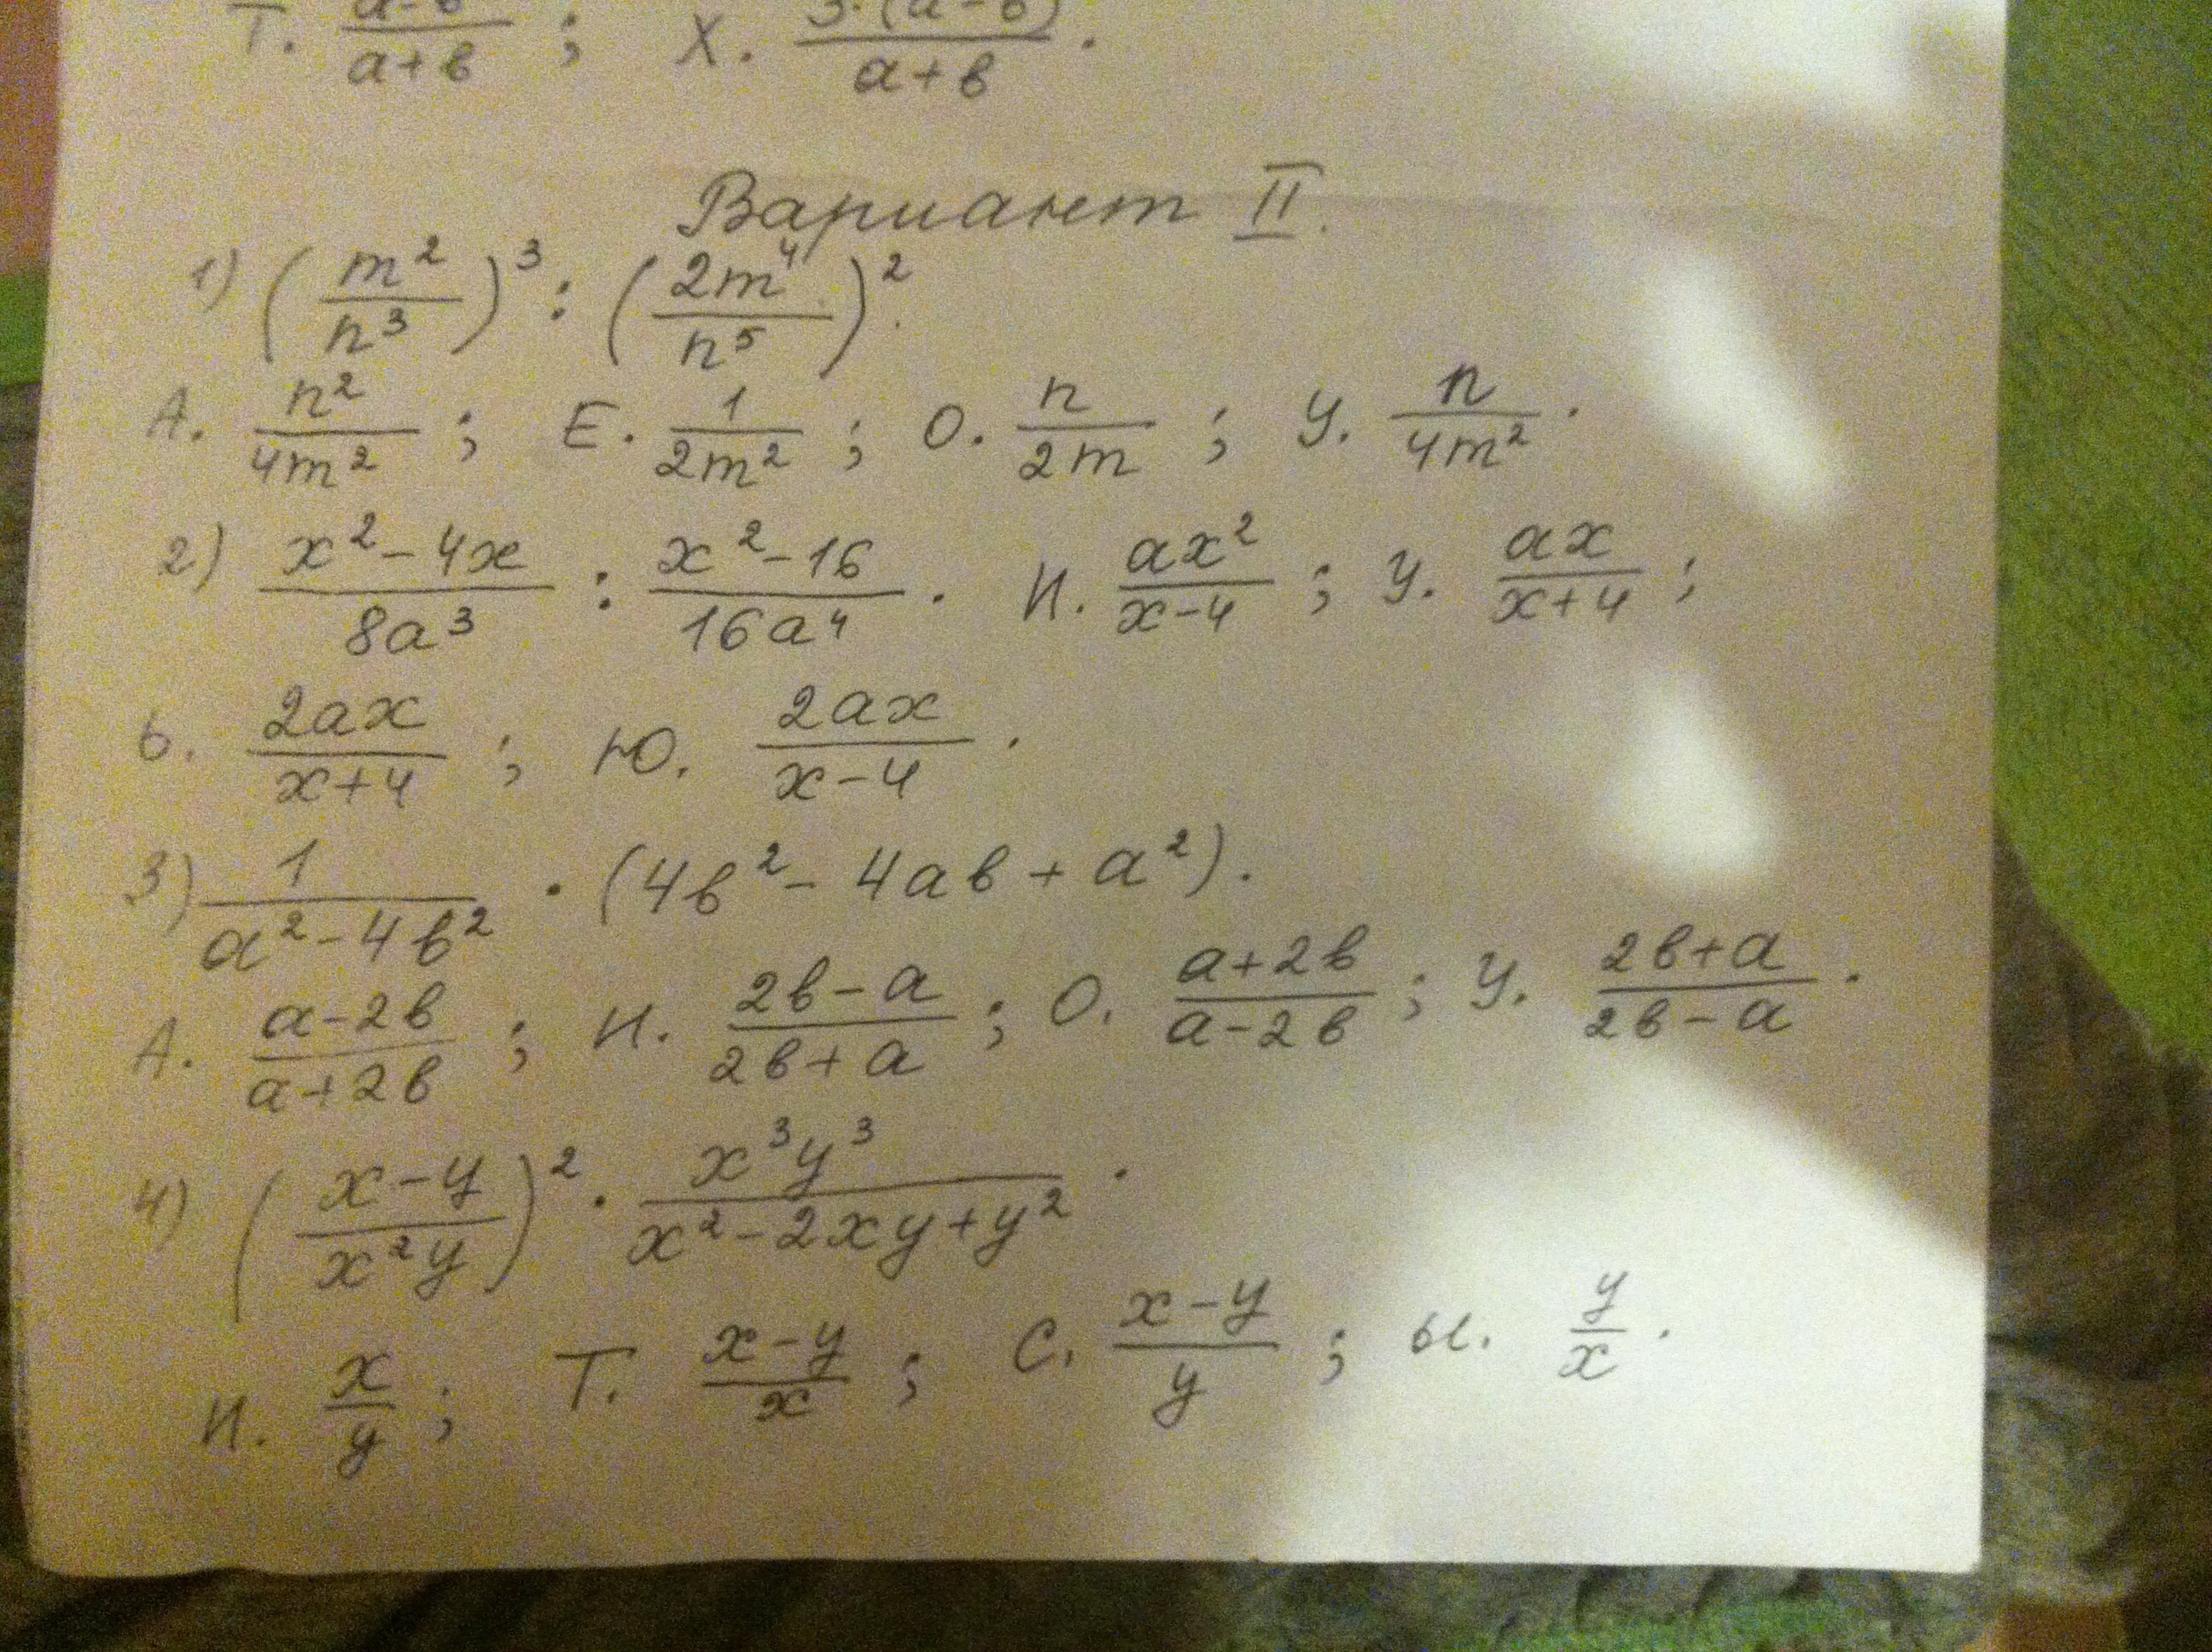 Т. (a-в)/(a+в) ; Х. (3·(a-в))/(a+в) .
Вариант II.
1) (m²/n³)³ : (2m⁴/n⁵)².
А. n²/4m² ; Е. 1/2m² ; О. n/2m ; У. n/4m² .
2) (x²-4x)/8a³ : (x²-16)/16a⁴ . И. ax²/(x-4) ; У. ax/(x+4) ;
Ь. 2ax/(x+4) ; Ю. 2ax/(x-4) .
3) 1/(a²-4в²) · (4в²- 4aв + a²).
А. (a-2в)/(a+2в) ; И. (2в-a)/(2в+a) ; О. (a+2в)/(a-2в) ; У. (2в+a)/(2в-a) .
4) ((x-y)/x²y)² · x³y³/(x²-2xy+y²) .
И. x/y ; Т. (x-y)/x ; С. (x-y)/y ; Ы. y/x .